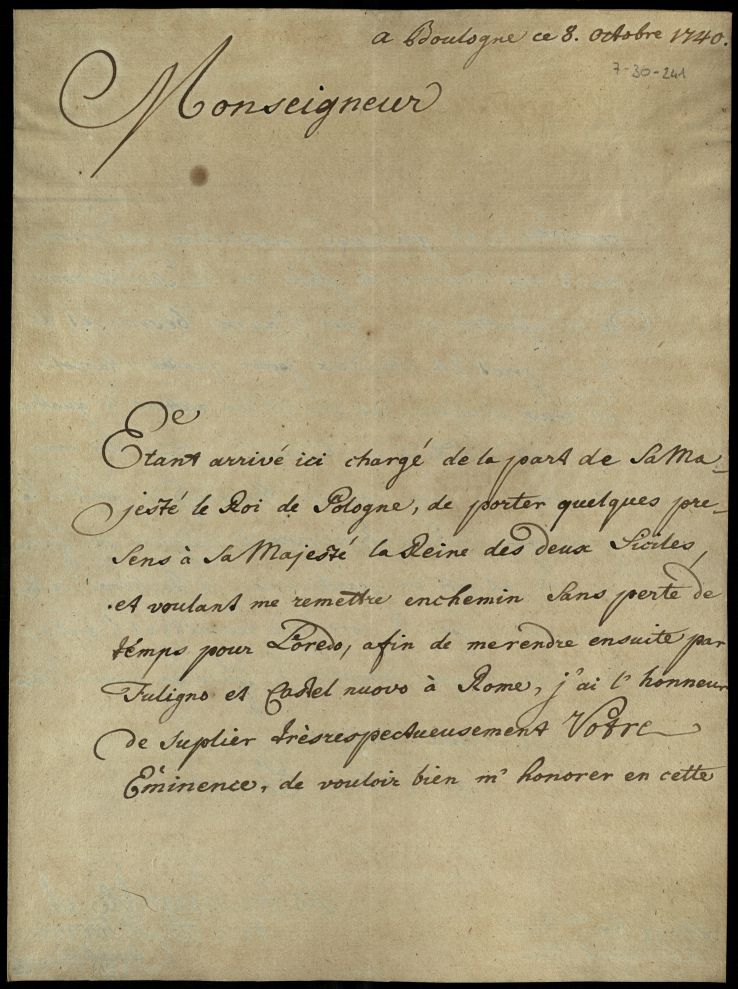 a Boulogne ce 8. Octobre 1740.
7-30-241
Monseigneur
Etant arrivé ici chargé de la part de Sa Ma-
jesté le Roi de Pologne, de porter quelques pre-
sens à Sa Majesté la Reine des deux Siciles,
et voulant me remettre enchemin sans perte de
témps pour Loredo, afin de merendre ensuite par
Fuligno et Castel nuovo à Rome, j'ai l'honneur
de suplier trèsrespectueusement Votre
Eminence, de vouloir bien m'honorer en cette